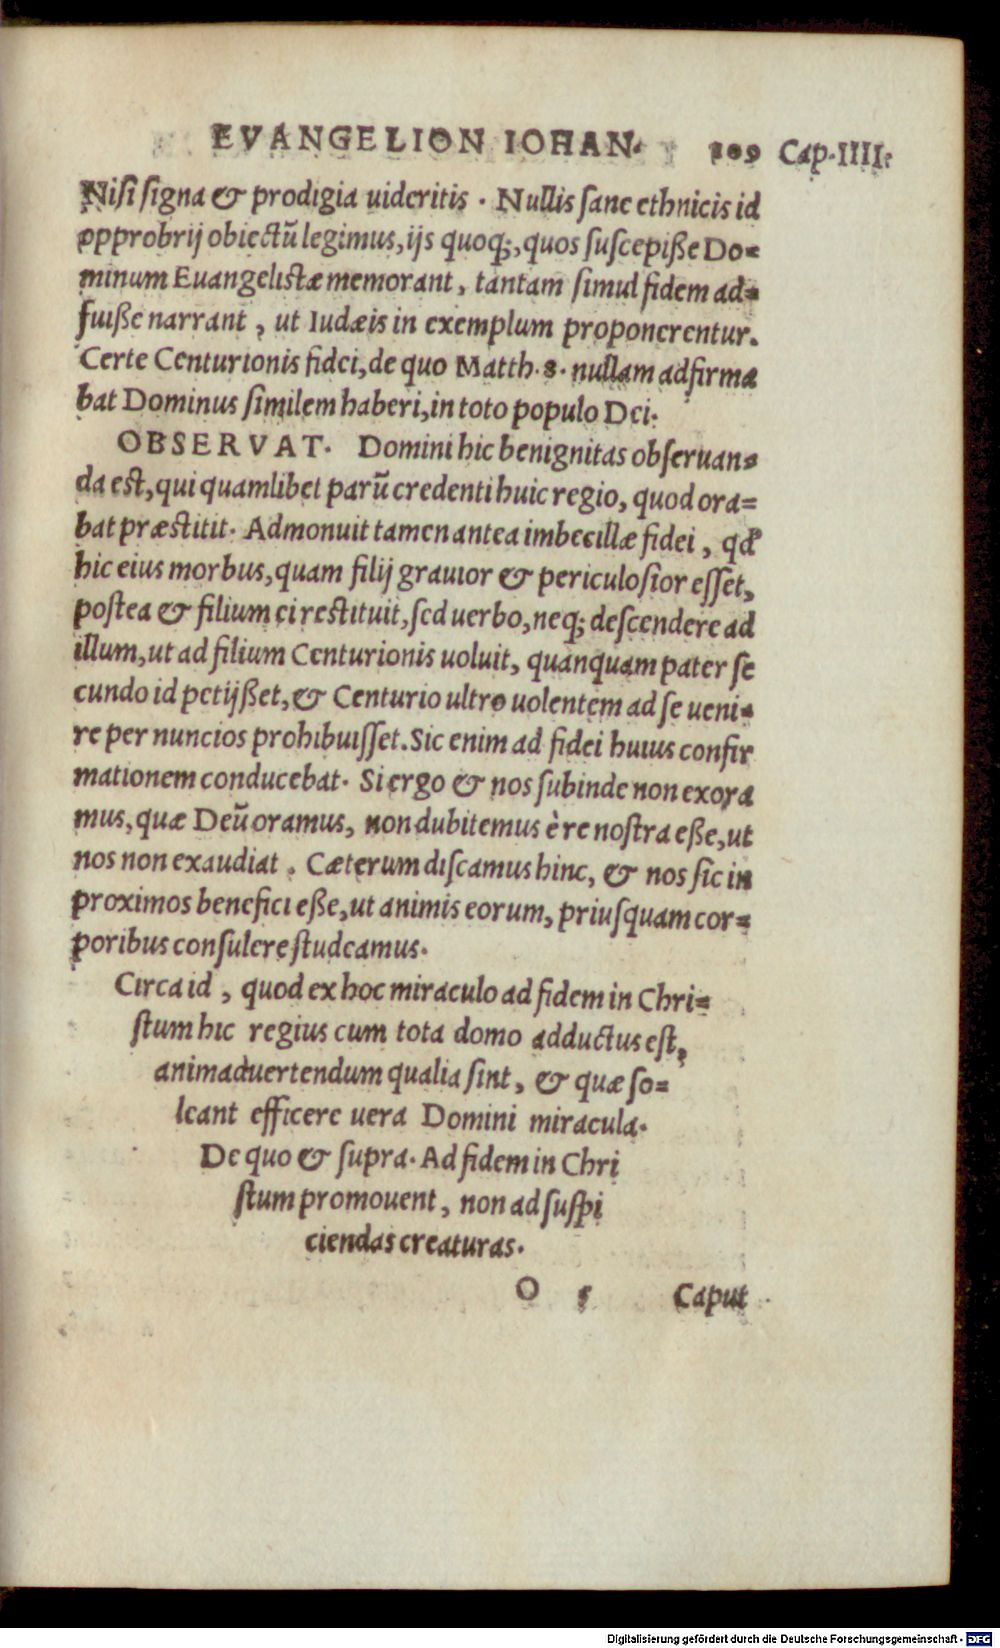 EVANGELION IOHAN. 109 Cap.IIII.
Nisi signa & prodigia uideritis . Nullis sane ethnicis id
opprobrij obiectũ legimus, ijs quoq;, quos suscepiße Do=
minum Euangelistæ memorant, tantam simul fidem ad=
fuiße narrant, ut Iudæis in exemplum proponerentur.
Certe Centurionis fidei, de quo Matth.8. nullam adfirma
bat Dominus similem haberi, in toto populo Dei.
OBSERVAT. Domini hic benignitas obseruan=
da est, qui quamlibet parũ credenti huic regio, quod ora=
bat præstitit. Admonuit tamen antea imbecillæ fidei, qđ
hic eius morbus, quam filij grauior & periculosior esset,
postea & filium ei restituit, sed uerbo, neq; descendere ad
illum, ut ad filium Centurionis uoluit, quanquam pater se
cundo id petijßet, & Centurio ultro uolentem ad se ueni=
re per nuncios prohibuisset. Sic enim ad fidei huius confir
mationem conducebat. Si ergo & nos subinde non exora
mus, quæ Deũ oramus, non dubitemus è re nostra eße, ut
nos non exaudiat. Cæterum discamus hinc, & nos sic in
proximos benefici eße, ut animis eorum, priusquam cor=
poribus consulere studeamus.
Circa id, quod ex hoc miraculo ad fidem in Chri=
stum hic regius cum tota domo adductus est,
animaduertendum qualia sint, & quæ so=
leant efficere uera Domini miracula.
De quo & supra. Ad fidem in Chri
stum promouent, non ad suspi
ciendas creaturas.
O 5 Caput
Digitalisierung gefördert durch die Deutsche Forschungsgemeinschaft - DFG